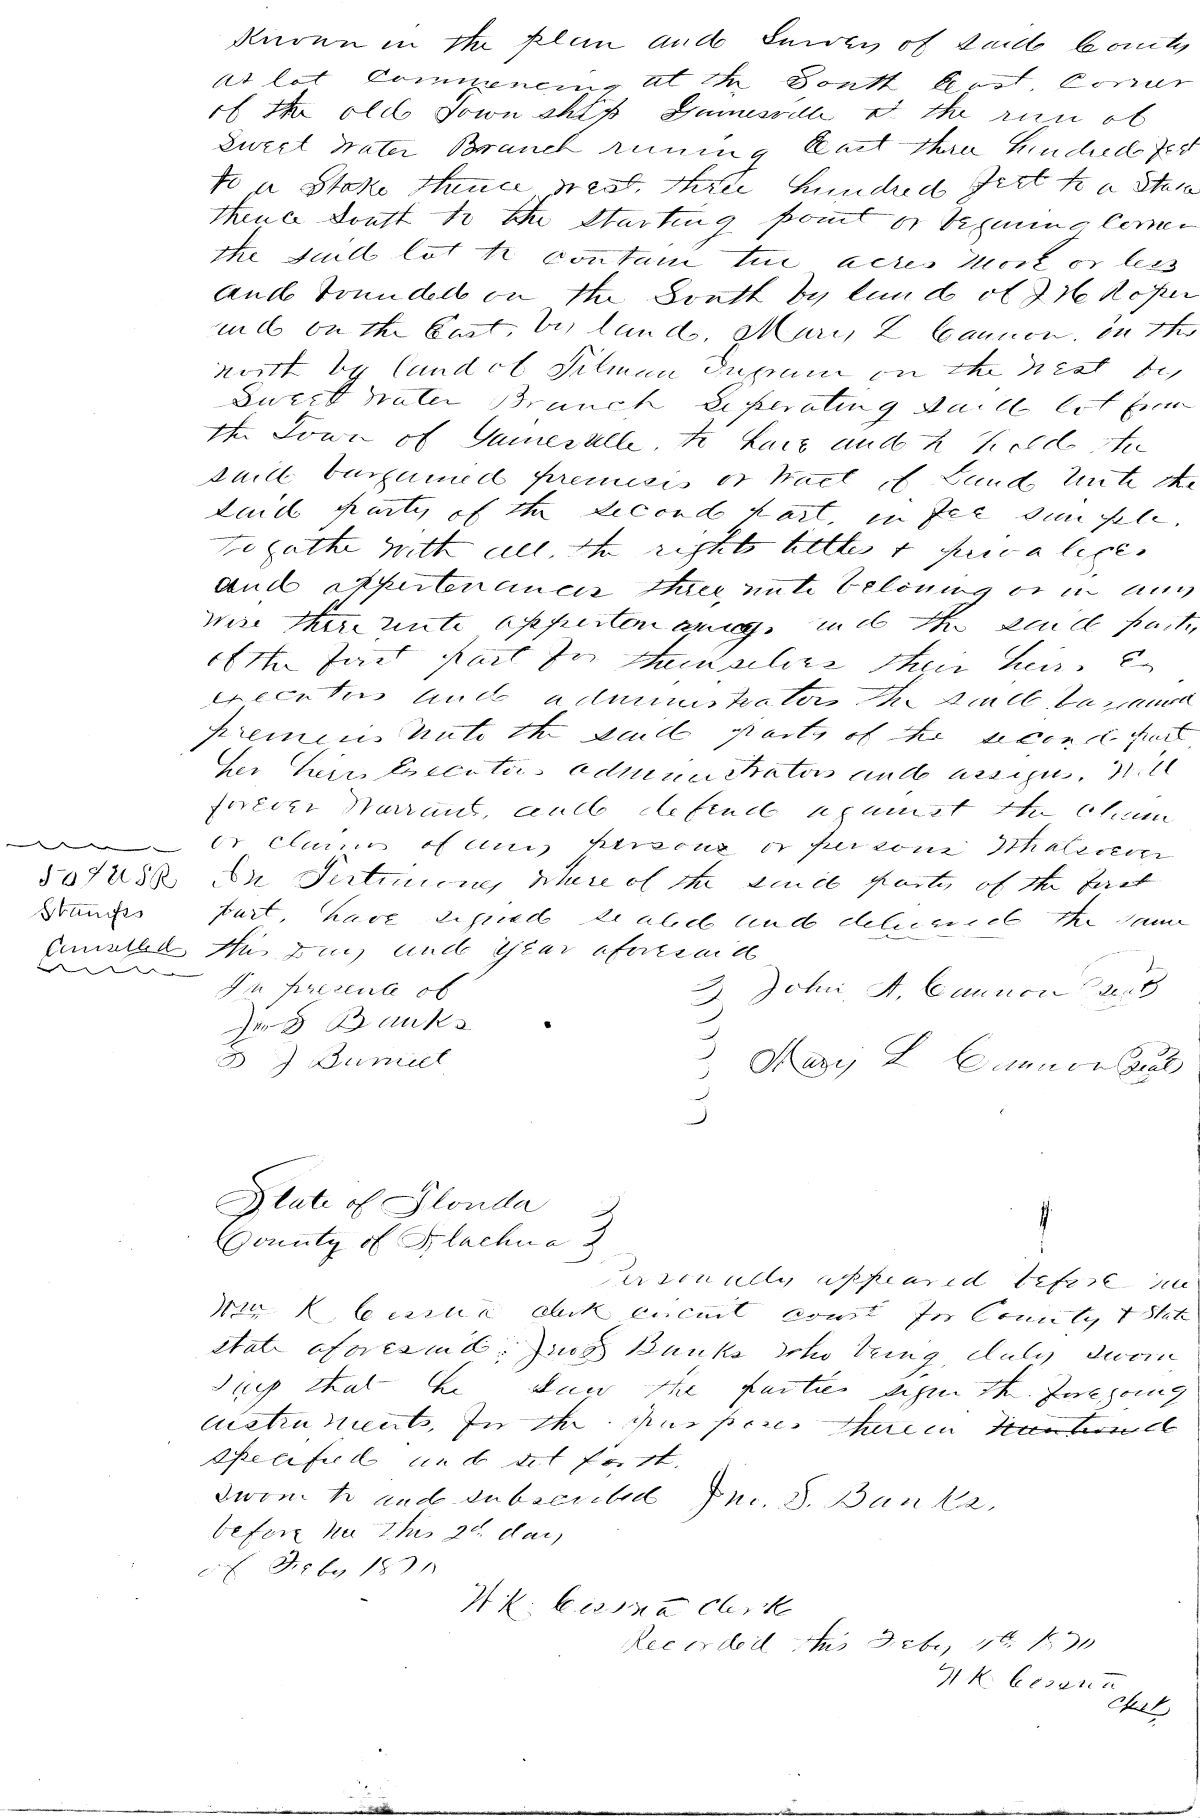 Known in the plan and Survey of said County
as lot Commencing at the South East Corner
of the old Township Gainesville at the run of
Sweet Water Branch runing East three hundred feet
to a Stake thence west three hundred feet to a Stake
thence South to the starting point or begining Corner
the said lot to contain acres more or less
and bounded on the South by land of J H Roper
and on the East by land Mary L Cannon in the
north by land of Tilman Ingram on the west by
Sweet Water Branch Seperating said lot from
the Town of Gainesville. to have and to hold the
said bargained premesis or tract of Land unto the
said party of the second part. in fee simple.
togathe with all the rights tittles & privaleges
and appertenances there unto beloning or in any
wise there unto and the said party
of the first part for themselves their heirs
executors and administrators the said bargained
premesis unto the said party of the second part
her heirs Executors administrators and assigns. Will
forever Warrant. and defend against the claim
or claims of any persons or persons Whatsoever
50 ¢ U S R In Testimoney Where of the said party of the first
Stamps part. have signed sealed and delivered the same
Cancelled this Day and year aforesaid
In presence of John A. Cannon Seal
Jno S Banks
Mary L Cannon Seal
State of Florida
County of Alachua
Personally appeared before me
Wm K Cessna clerk circuit court for County & State
state aforesaid; Jno S Banks who being duly sworn
says that he saw the parties sign the foregoing
instruments. for the purposes therein mentioned
specified and set forth.
sworn to and subscribed Jno. S. Banks.
before me this 2d day
of Feby 1870
W K. Cessna Clerk
Recorded this Feby 4th 1870
W K Cessna
Clerk